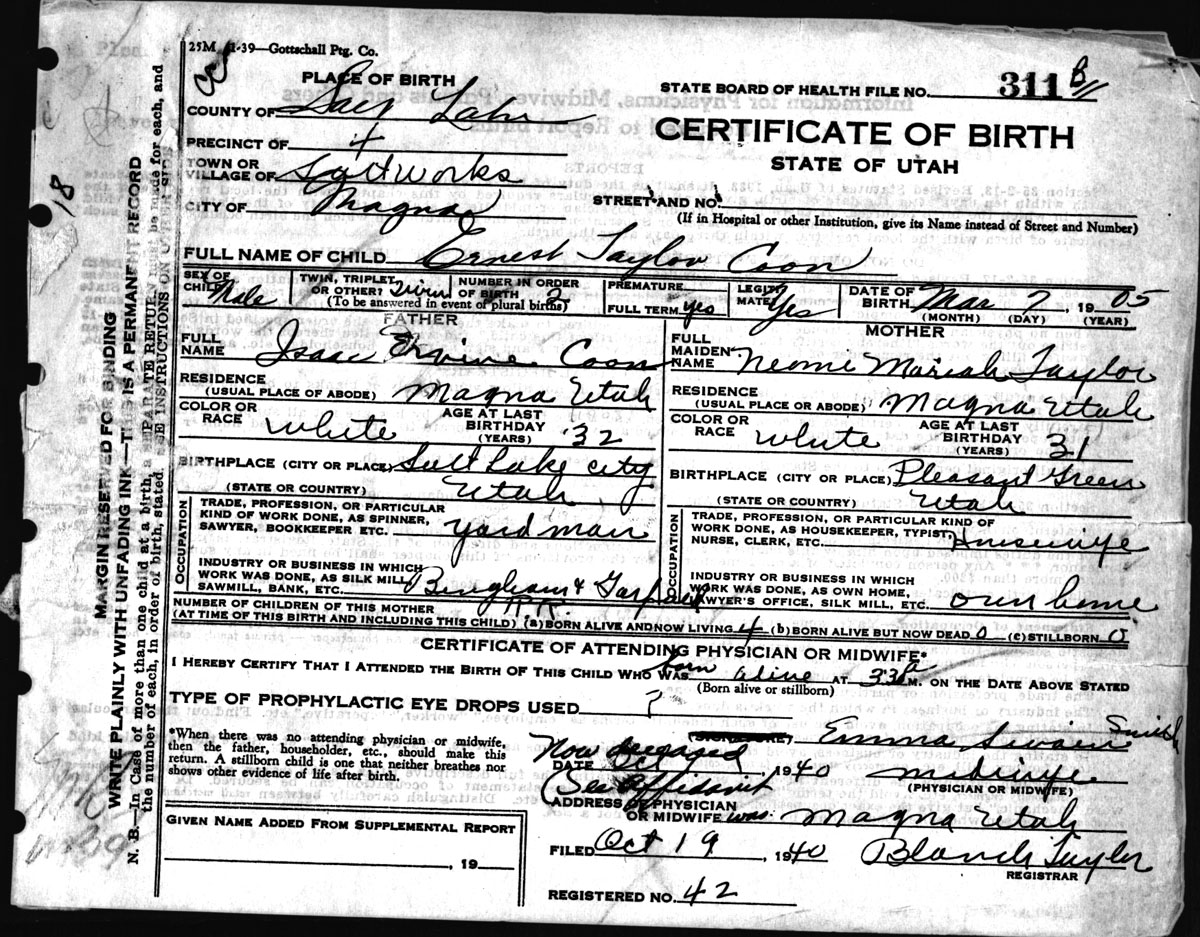 25M 1-39—Gottschall Ptg. Co.
PLACE OF BIRTH
COUNTY OF Salt Lake
PRECINCT OF 4
TOWN OR
VILLAGE OF Saltworks
CITY OF Magna
STATE BOARD OF HEALTH FILE NO. 311 B
CERTIFICATE OF BIRTH
STATE OF UTAH
STREET AND NO.
(If in Hospital or other Institution, give its Name instead of Street and Number)
FULL NAME OF CHILD Ernest Taylor Coon
SEX OF CHILD Male
TWIN, TRIPLET OR OTHER? Twin
NUMBER IN ORDER OF BIRTH 2
(To be answered in event of plural births)
PREMATURE
FULL TERM yes
LEGITIMATE? Yes
DATE OF BIRTH Mar 7, 1905
(MONTH) (DAY) (YEAR)
FATHER
FULL NAME Isaac Ervine Coon
RESIDENCE
(USUAL PLACE OF ABODE) Magna Utah
COLOR OR RACE White
AGE AT LAST BIRTHDAY (YEARS) 32
BIRTHPLACE (CITY OR PLACE) Salt Lake City
(STATE OR COUNTRY) Utah
OCCUPATION
TRADE, PROFESSION, OR PARTICULAR
KIND OF WORK DONE, AS SPINNER,
SAWYER, BOOKKEEPER ETC. yard man
INDUSTRY OR BUSINESS IN WHICH
WORK WAS DONE, AS SILK MILL,
SAWMILL, BANK, ETC. Bingham & Garfield
R.R.
MOTHER
FULL MAIDEN NAME Neome Mariah Taylor
RESIDENCE
(USUAL PLACE OR ABODE) Magna Utah
COLOR OR RACE White
AGE AT LAST BIRTHDAY (YEARS) 31
BIRTHPLACE (CITY OR PLACE) Pleasant Green
(STATE OR COUNTRY) Utah
OCCUPATION
TRADE, PROFESSION, OR PARTICULAR KIND OF
WORK DONE, AS HOUSEKEEPER, TYPIST,
NURSE, CLERK, ETC. Housewife
INDUSTRY OR BUSINESS IN WHICH
WORK WAS DONE, AS OWN HOME,
LAWYER'S OFFICE, SILK MILL, ETC. own home
NUMBER OF CHILDREN OF THIS MOTHER
(AT TIME OF THIS BIRTH AND INCLUDING THIS CHILD) (a) BORN ALIVE AND NOW LIVING 4 (b) BORN ALIVE BUT NOW DEAD 0 (c) STILLBORN 0
CERTIFICATE OF ATTENDING PHYSICIAN OR MIDWIFE*
I HEREBY CERTIFY THAT I ATTENDED THE BIRTH OF THIS CHILD WHO WAS born alive AT 330 a M. ON THE DATE ABOVE STATED
(Born alive or stillborn)
TYPE OF PROPHYLACTIC EYE DROPS USED ?
*When there was no attending physician or midwife,
then the father, householder, etc., should make this
return. A stillborn child is one that neither breathes nor
shows other evidence of life after birth.
GIVEN NAME ADDED FROM SUPPLEMENTAL REPORT
, 19
(SIGNATURE) Emma Swain Smith
Now deceased
DATE Oct 9, 1940 Midwife
(PHYSICIAN OR MIDWIFE)
(See Affidavit
ADDRESS OF PHYSICIAN
OR MIDWIFE was Magna Utah
FILED Oct 19, 1940 Blanch Taylor
REGISTRAR
REGISTERED NO. 42
MARGIN RESERVED FOR BINDING
WRITE PLAINLY WITH UNFADING INK—THIS IS A PERMANENT RECORD
N. B.—In case of more than one child at a birth, a SEPARATE RETURN must be made for each, and
the number of each, in order of birth, stated. SEE INSTRUCTIONS ON OTHER SIDE
18
39